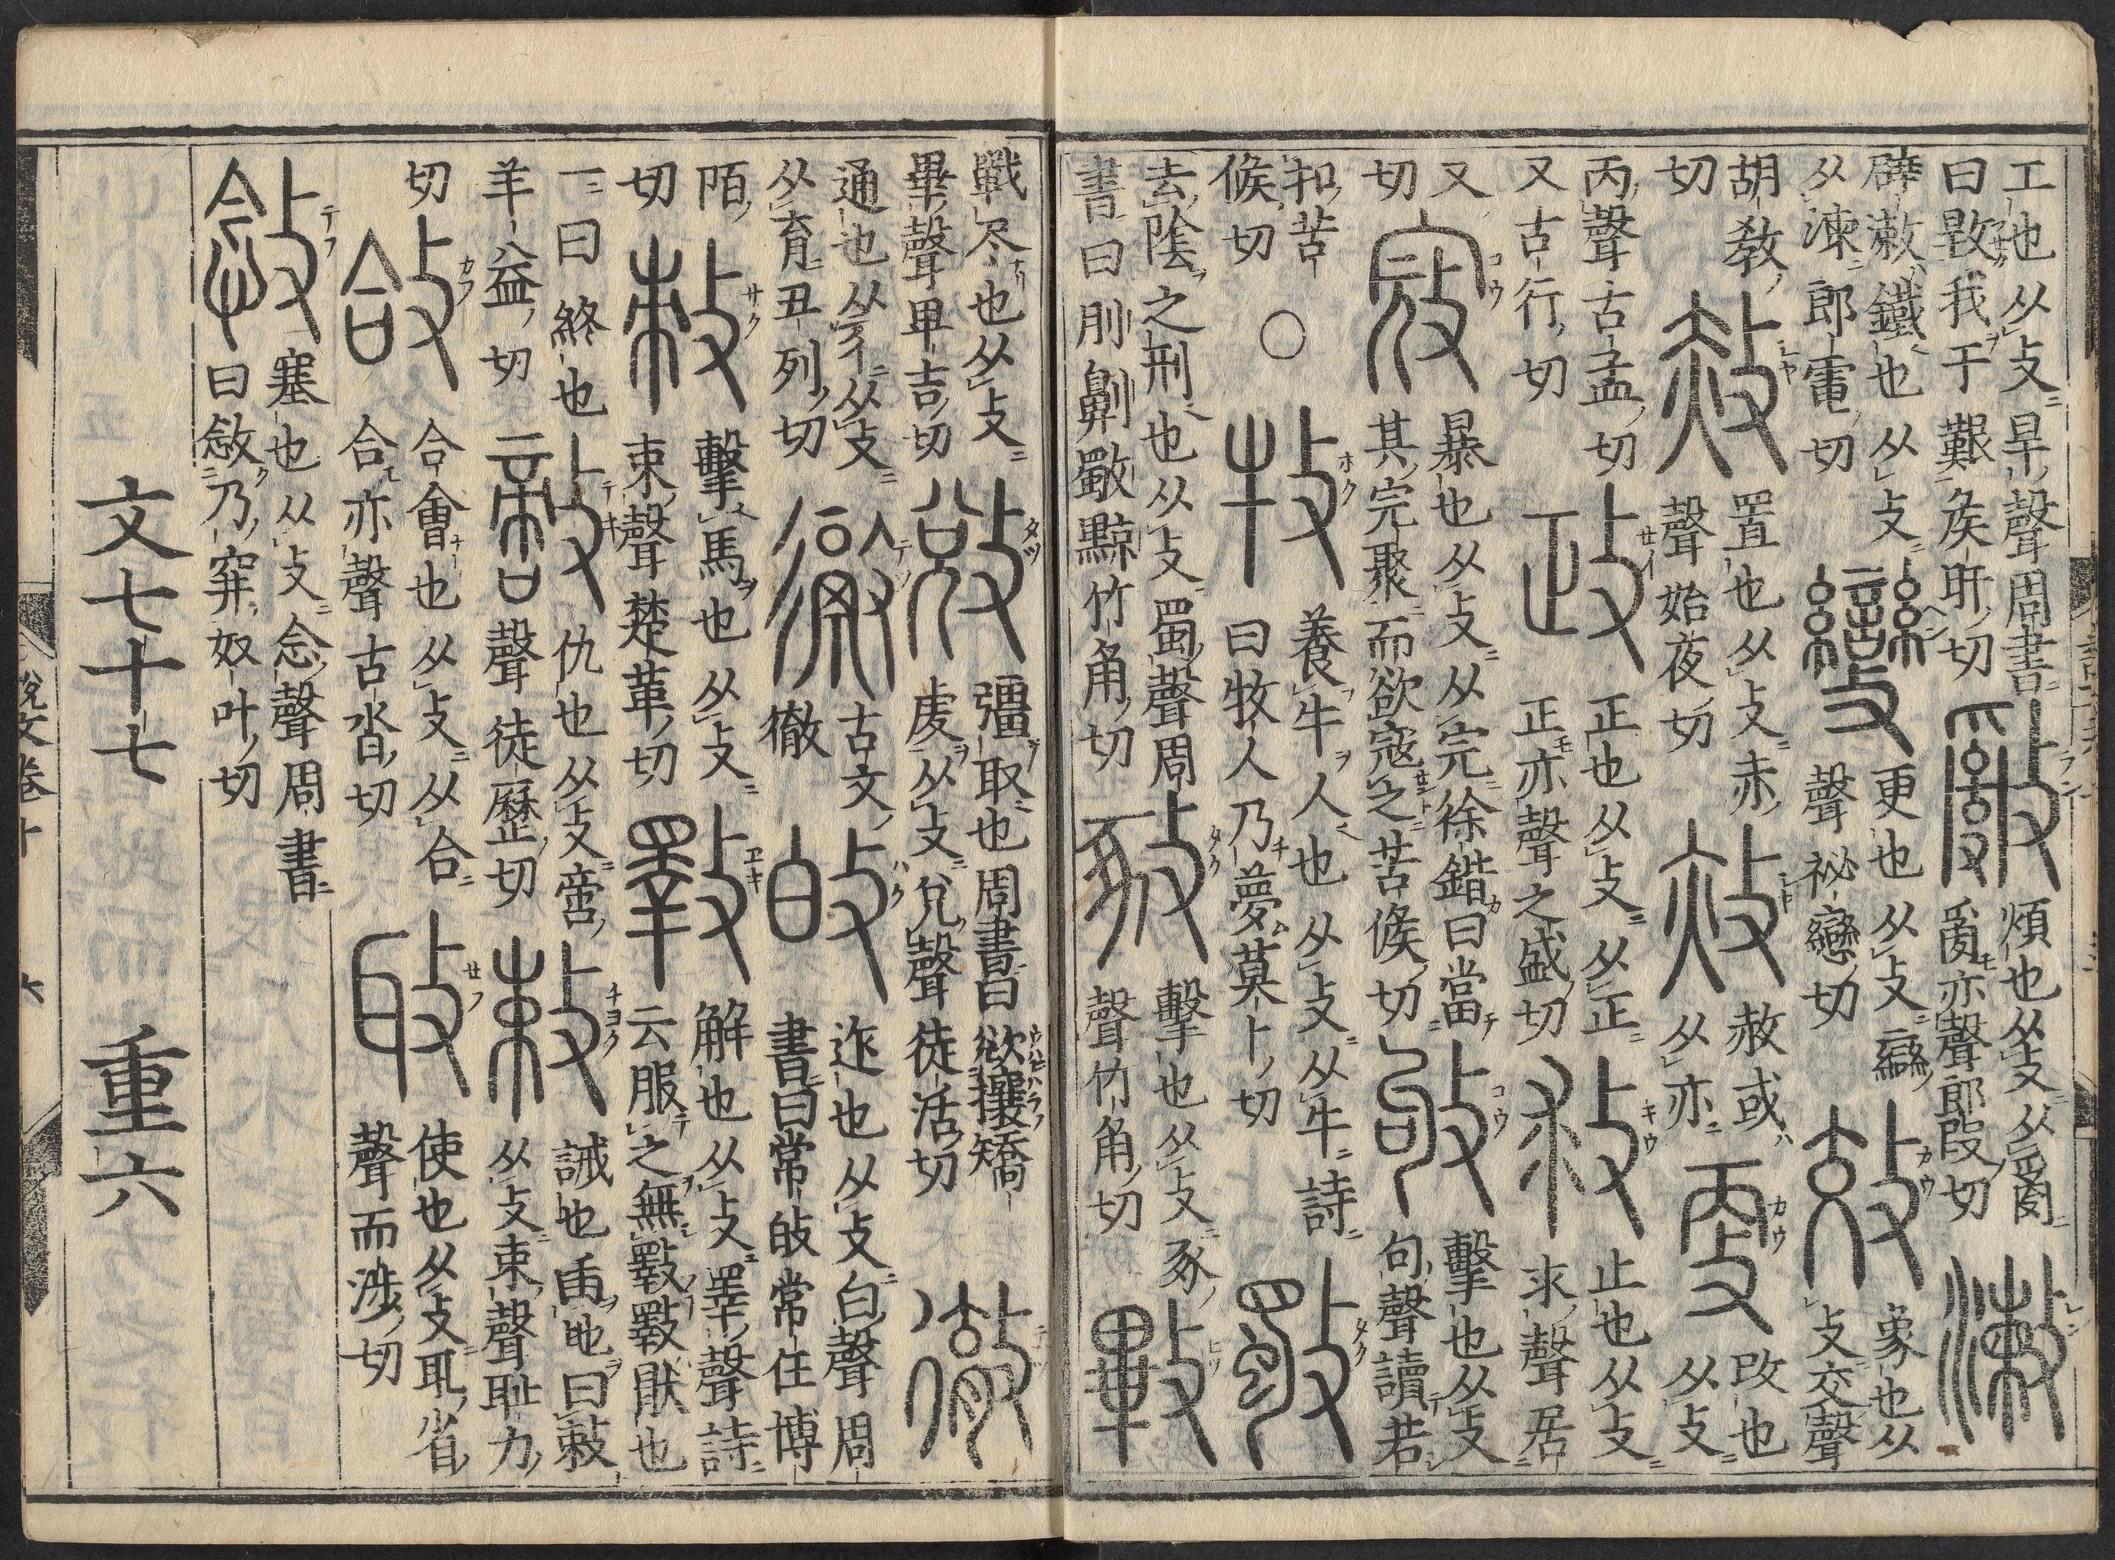 工也从攴旱聲周書
曰㪋我于艱矦旰切
𢿢
煩也从攴从𤔔
𤔔亦聲郎段切
辟漱鐵也从攴
从湅郎電切
變
更也从攴䜌
聲祕戀切
象也从
攴交聲
胡教
切
赦
置也从攴赤
聲始夜切
赦或
从亦
更
改也
从攴
丙聲古孟切
又古行切
政
正也从攴从正
正亦聲之盛切
救
止也从攴
求聲居
又
切
寇
暴也从攴从完徐鍇曰當
其完聚而欲寇之苦候切
敂
擊也从攴
句聲讀若
扣苦
候切
○
牧
養牛人也从攴从牛詩
曰牧人乃夢莫卜切
斀
去陰之刑也从攴蜀聲周
書曰刖劓斀黥竹角切
擊也从攴豕
聲竹角切
㪤
戰尽也从攴
畢聲卑吉切
敓
彊取也周書曰敓攘矯
虔从攴兌聲徒活切
徹
通也从彳从攴
从育丑列切
古文
徹
敀
迮也从攴白聲周
書曰常敀常任博
陌
切
擊馬也从攴
朿聲楚革切
斁
解也从攴睪聲詩
云服之無斁斁猒也
一曰終也
羊益切
敵
仇也从攴啻
聲徒歷切
敕
誡也臿地曰敕
从攴束聲恥力
切
敆
合會也从攴从合
合亦聲古沓切
使也从攴耴省
聲而涉切
敜
塞也从攴念聲周書
曰敜乃穽奴叶切
文七十七 重六
說文卷十 六